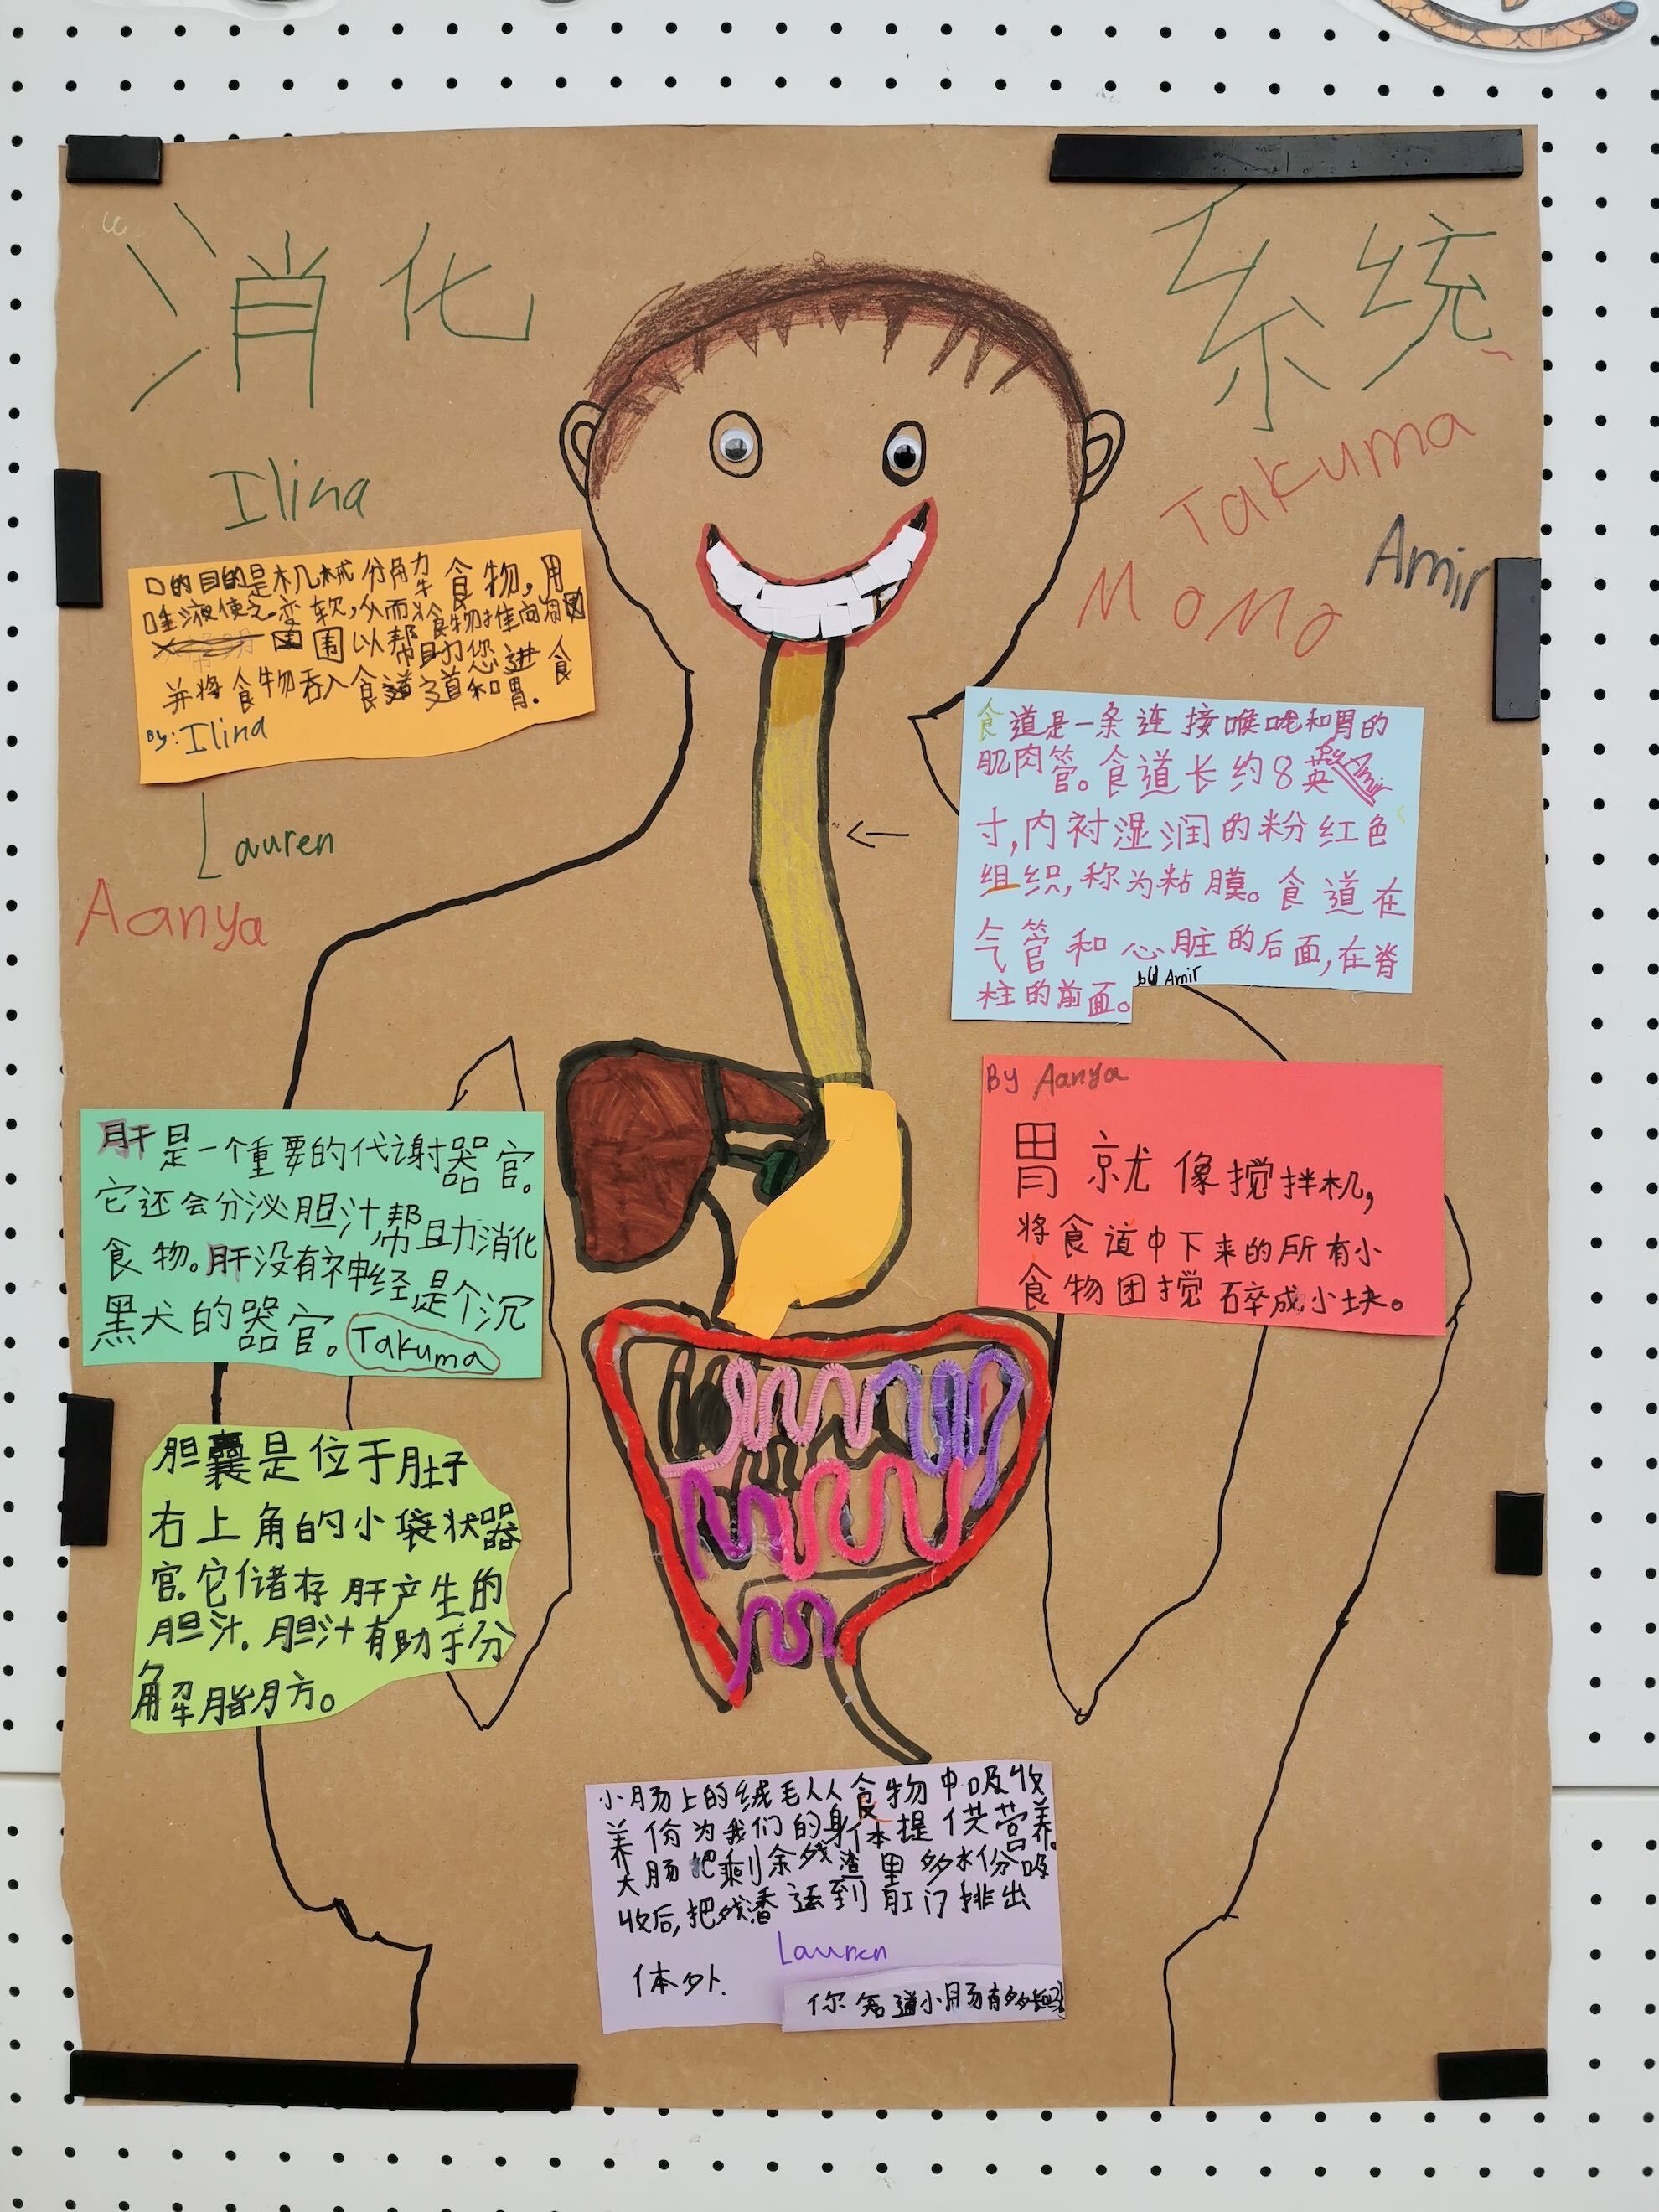 消化
系统
Ilina
Takuma
Amir
Mona
口的目的是机械分解食物,用
唾液使之变软,从而将食物推向周
围以帮助您进食
并将食物吞入食道和胃.
By: Ilina
Lauren
Aanya
食道是一条连接喉咙和胃的
肌肉管。食道长约8英
寸,内衬湿润的粉红色
组织,称为粘膜。食道在
气管和心脏的后面,在脊
柱的前面。
by Amir
By Aanya
胃就像搅拌机,
将食道中下来的所有小
食物团搅碎成小块。
肝是一个重要的代谢器官.
它还会分泌胆汁,帮助消化
食物。肝没有神经是个沉
黑犬的器官。Takuma
胆囊是位于肚子
右上角的小袋状器
官.它储存肝产生的
胆汁.胆汁有助于分
解脂肪。
小肠上的绒毛从食物中吸收
养份为我们的身体提供营养.
大肠把剩余残渣里多水份吸
收后,把残渣运到肛门排出
体外.
Lauren
你知道小肠有多长吗